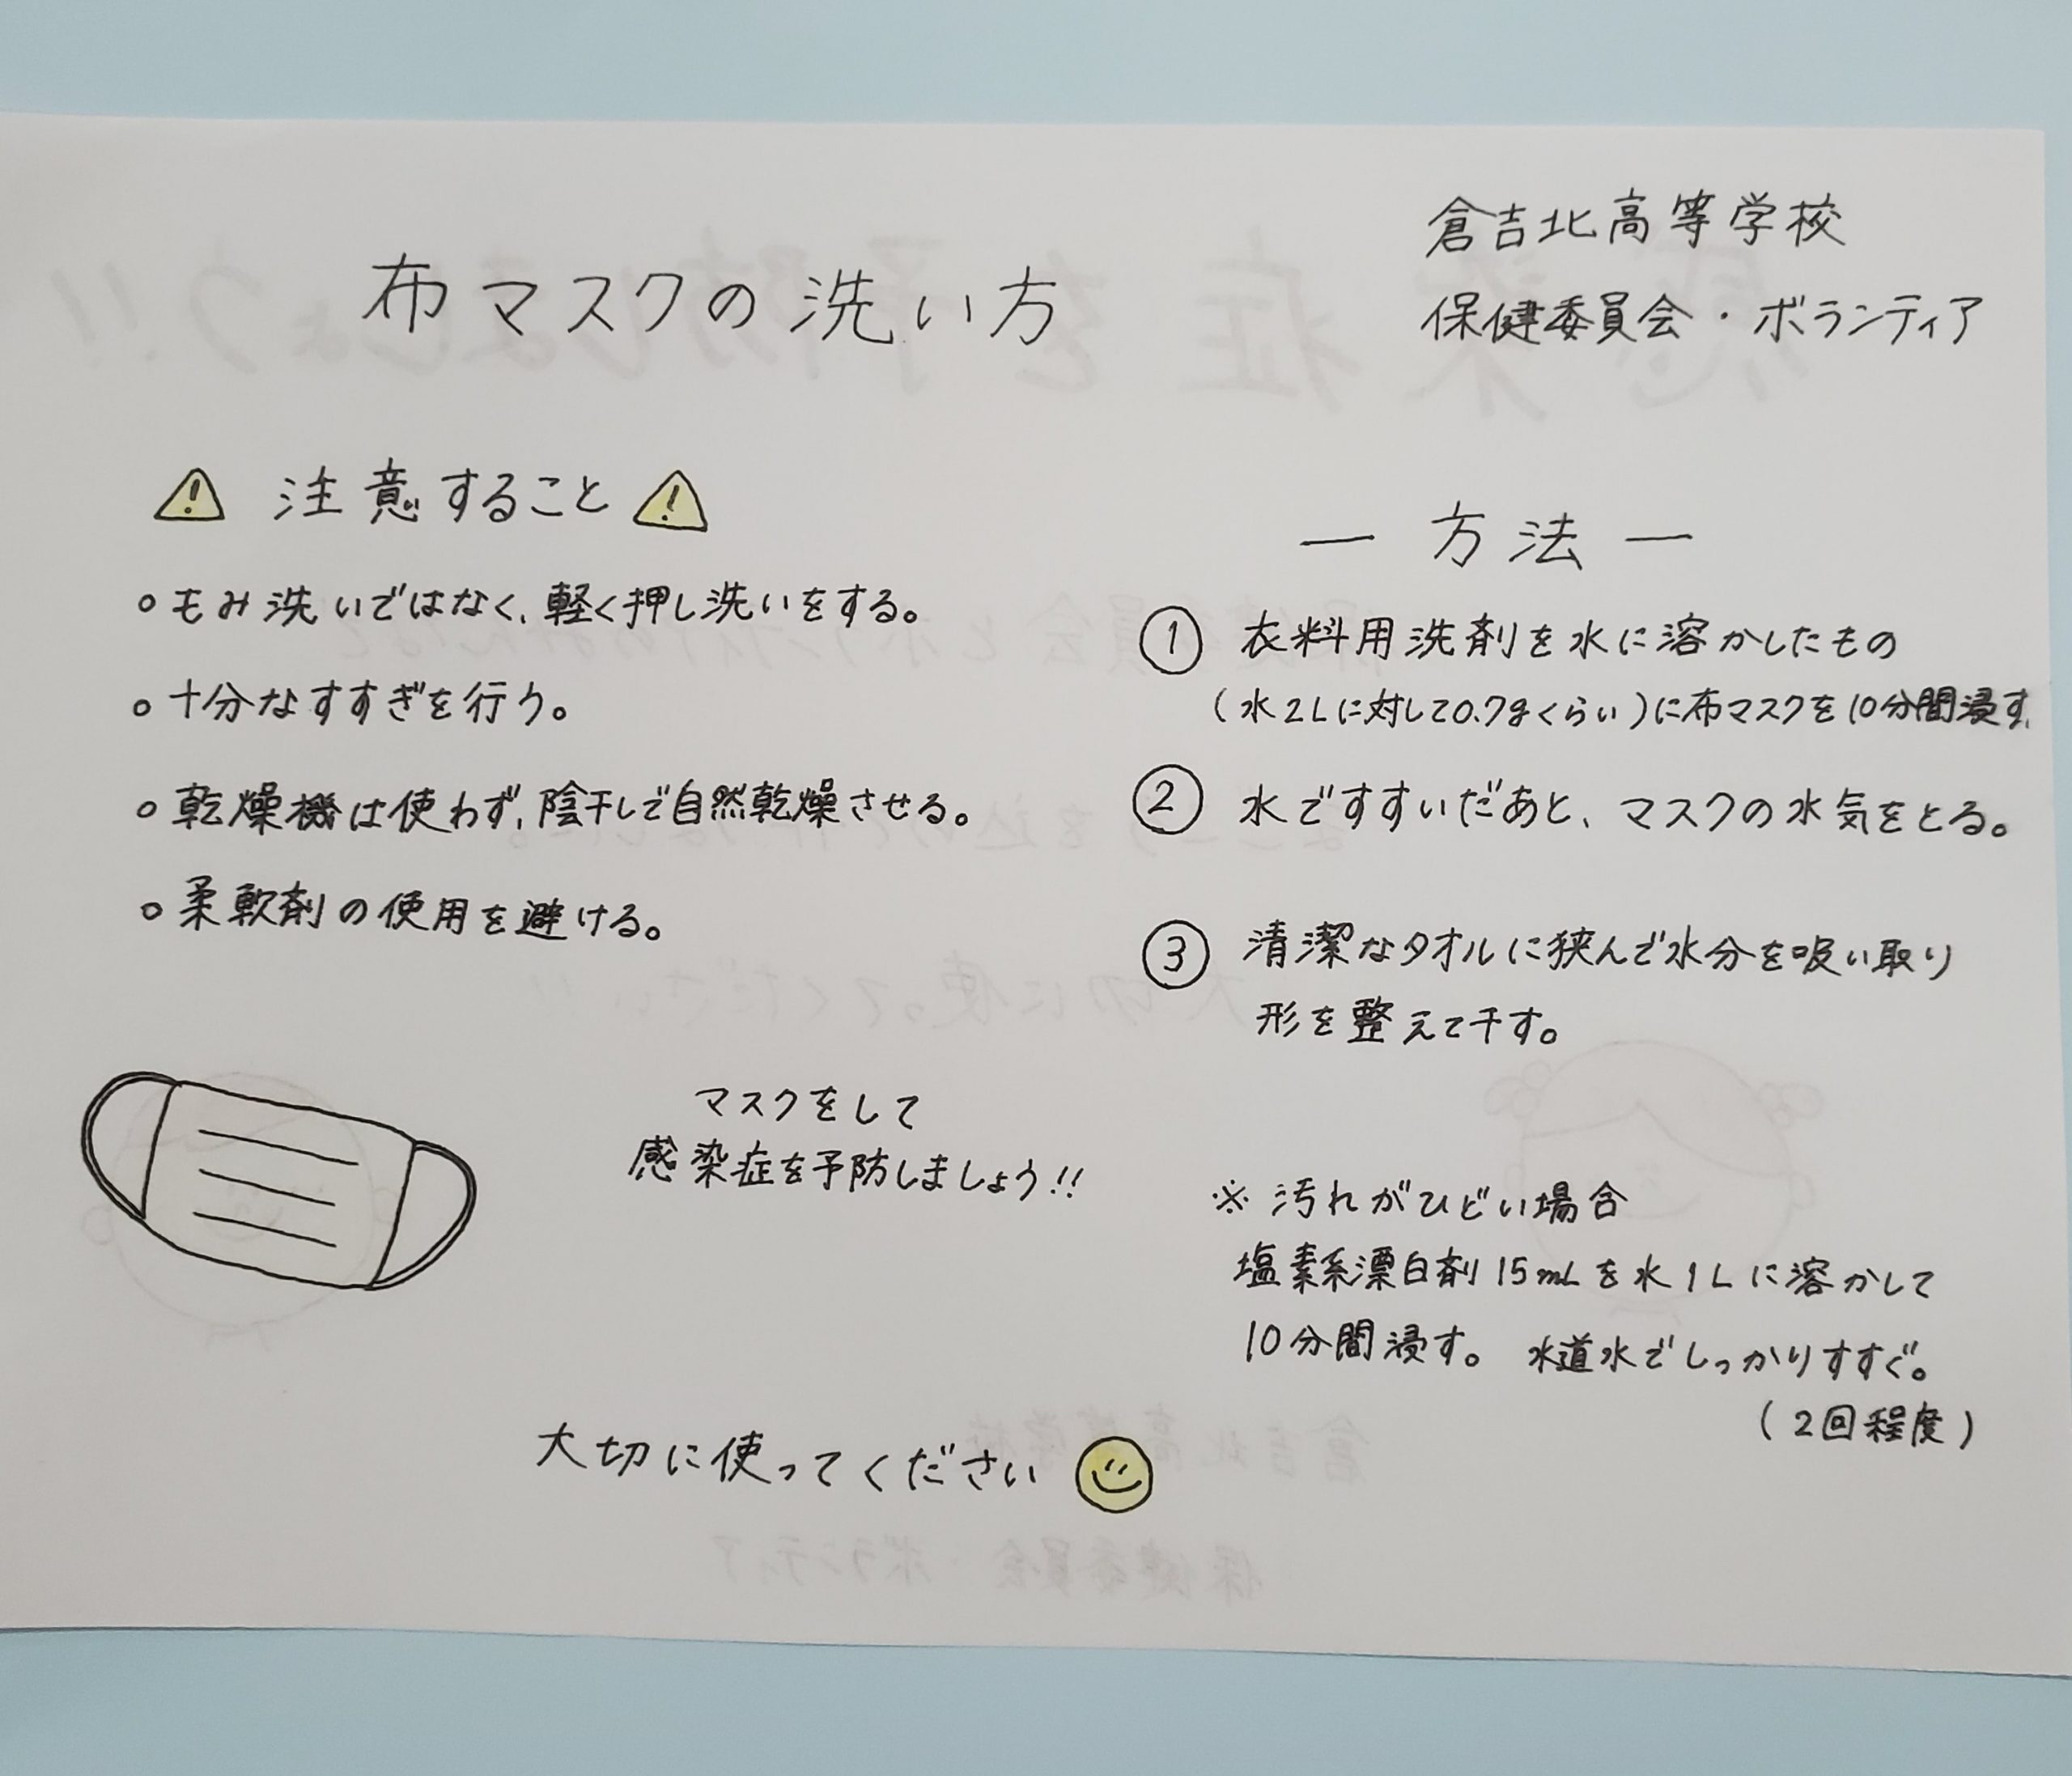 倉吉北高等学校
保健委員会・ボランティア
布マスクの洗い方
注意すること
○もみ洗いではなく、軽く押し洗いをする。
○十分なすすぎを行う。
○乾燥機は使わず、陰干しで自然乾燥させる。
○柔軟剤の使用を避ける。
ー方法ー
① 衣料用洗剤を水に溶かしたもの
(水2Lに対して0.7gくらい)に布マスクを10分間浸す。
② 水ですすいだあと、マスクの水気をとる。
③ 清潔なタオルに挟んで水分を吸い取り
形を整えて干す。
マスクをして
感染症を予防しましょう!!
※汚れがひどい場合
塩素系漂白剤15mLを水1Lに溶かして
10分間浸す。水道水でしっかりすすぐ。
(2回程度)
大切に使ってください